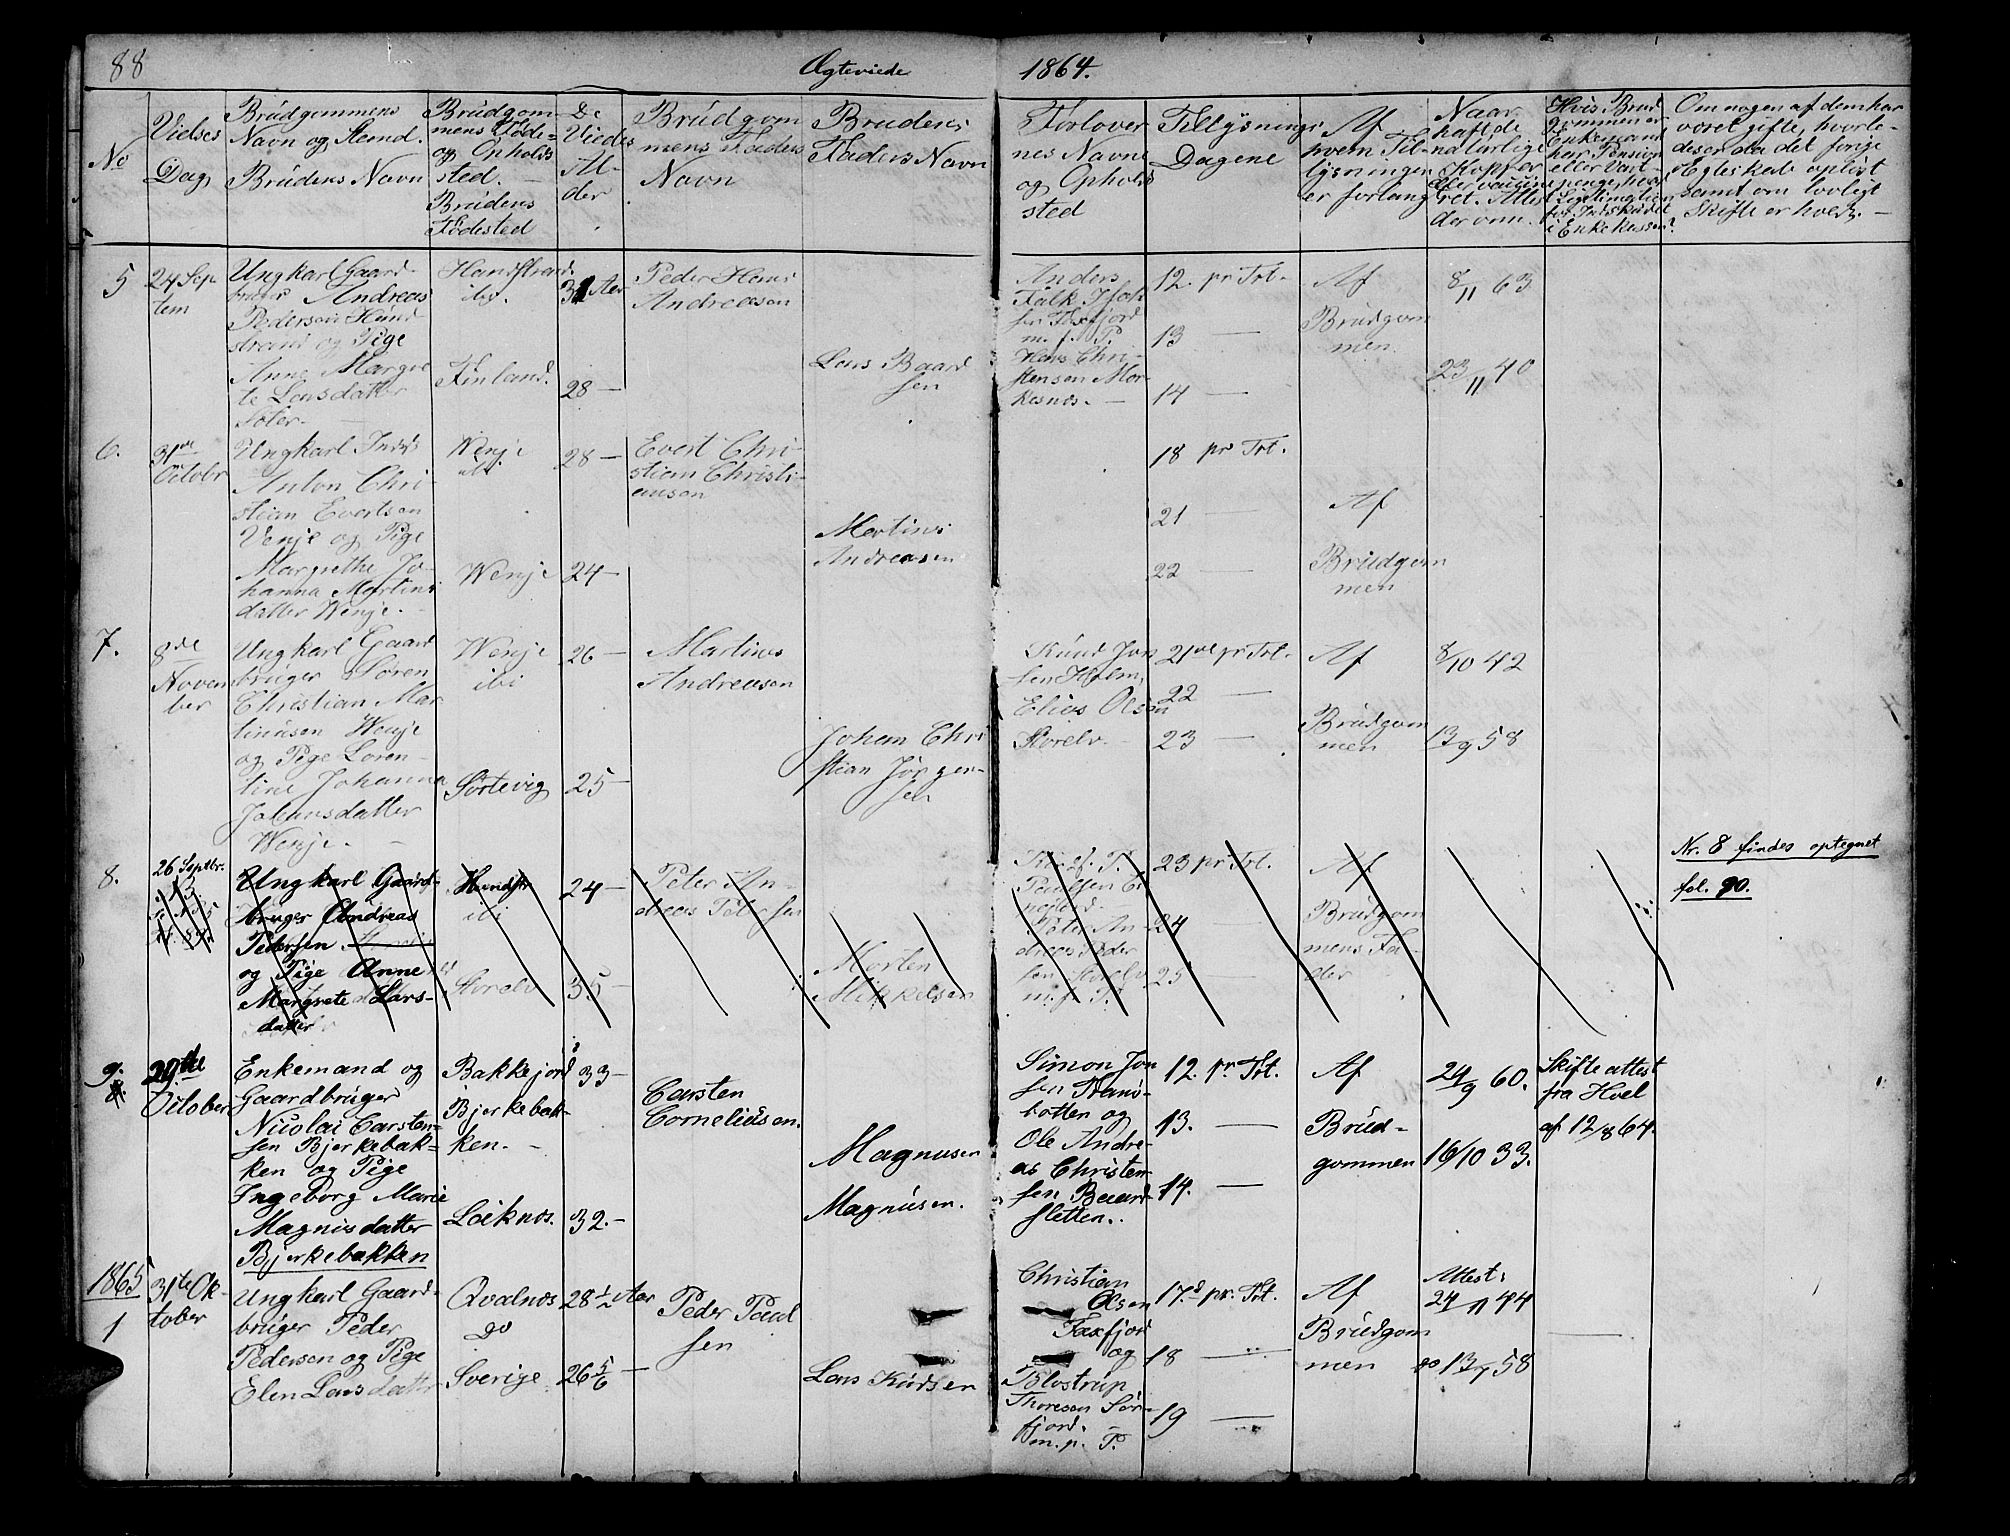 88
Ægteviede
1864.
No
Vielses
Dag
Brudgommens
Navn og Stand.
Brudens Navn
Brudgom
mens Føde-
og Opholds
sted.
Brudens
Fødested
De
Viedes
Al-
der
Brudgom
mens Faders
Navn
Brudens
Faders Navn
Forlover
nes Navne
og Opholds
sted
Tillysnings
Dagene
Af
hvem Til-
lysningen
er forlangt
Naar
havt de
naturlige
Kopper
eller vaccine
ret. Attest
derom.
Hvis Brud
gommen er
Enkemand
har Pension
i Enkekassen?
Om nogen af dem har
været gifte, hvorle-
des er da det forige
Ægteskab opløst
samt om lovligt
Skifte er holdt.
5
24 Sep
tem
Ungkarl Gaard-
bruger Andreas
Pedersen Hand
strand og Pige
Anne Margre
te Larsdatter
Handstrand
ibi.
Finland.
31 Aar
28 —
Peder Hans
Andreasen
Lars Baard
sen
Anders
Falk
m. f. P.
Hans Chri-
stensen Mor-
kesnæs.
12. pr Trt.
13 —
14 —
Af
Brudgom
men
8/11 63
23/11 40
6.
31te
Octobr
Ungkarl Inds
Anton Chri-
stian Evertsen
Venje og Pige
Margrethe Jo-
hanna Martins
datter Wenje.
Wenje
ibi
Wenje
28 —
24 —
Evert Chri-
stian Christi-
ansen
Martinus
Andreasen
18 pr Trt.
21 —
22 —
Af
Brudgom
men
7.
8de
Novem
ber
Ungkarl Gaard
bruger Søren
Christian Mar
tinusen Wenje
og Pige Loren-
tine Johanna
Johansdatter
Wenje.
Wenje
ibi
Sørtevig
26 —
25 —
Martinus
Andreasen
Johan Chri
stian Jørgen-
sen
Knud Jon
sen Holm,
Elias Olsen
Storelv.
21de pr Trt.
22 —
23 —
Af
Brudgom
men
8/10 42
13/9 58
8.
26 Septbr.
Ungkarl Gaard-
bruger Andreas
Pedersen
og Pige Anne
Margrete Lars-
datter
ibi
Storelv
24 —
35 —
Peter An-
dreas Petersen
Morten
Mikkelsen
Peter An-
dreas Peder
sen Storelv
m. f. P.
23 pr Trt.
24 —
25 —
Af
Brudgom
mens Fa-
der
Nr. 8 findes optegnet
fol. 90.
9.
29de
October
Enkemand og
Gaardbruger
Nicolai Carsten-
sen Bjerkebak-
ken og Pige
Ingeborg Marie
Magnusdatter
Bjerkebakken
Bakkejord
Bjerkebak-
ken.
Laknæs.
33 —
32. —
Carsten
Cornelius en.
Magnusen
Magnusen.
Simon Jon
sen Trans-
botten og
Ole Andre-
as Christen-
sen Baard-
sletten.
12. pr Trt.
13. —
14. —
Af
Brud-
gommen
24/9 60.
16/10 33.
Skifteattest
fra Hvel
af 12/8 64.
1865
1
31te Ok-
tober
Ungkarl Gaard-
bruger Peder
Pedersen og Pige
Elen Larsdatter
Qvalnæs
Do
Sverige
28 1/2 Aar
26 5/6 —
Peder Paul
sen
Lars Knudsen
Christian
Olsen
Faxfjord
og
Blostrup
Thoresen Sør-
fjord.
m. p. T.
17.d pr. Trt.
18 —
19 —
Af
Brudgom
men
Attest:
24/11 44
do 13/9 58